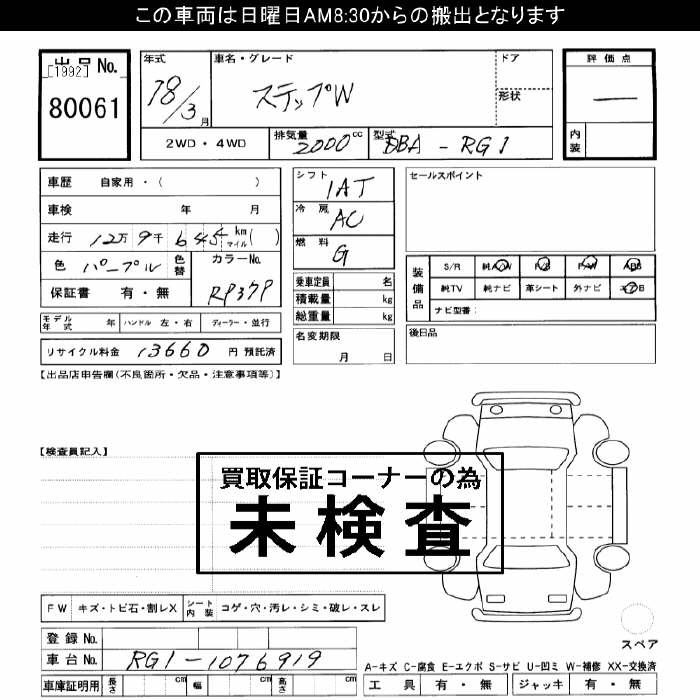 この車両は日曜日AM8:30からの搬出となります
出品 No.
[1992]
80061
年式
18/3月
車名・グレード
ステップW
ドア
形状
2WD・4WD
排気量 2000cc
型式 DBA-RG1
評価点
―
内装
車歴 自家用・( )
車検 年 月
走行 12万9千645km マイル( )
色 パープル 色替
カラーNo.
RP37P
保証書 有・無
シフト
1AT
冷房
AC
燃料
G
乗車定員 名
積載量 kg
総重量 kg
名変期限
月 日
セールスポイント
装備品
S/R 純A/W P/S P/W ABS
純TV 純ナビ 革シート 外ナビ エアB
ナビ型番:
後日品
モデル年式 年 ハンドル 左・右 ディーラー・並行
リサイクル料金 13660 円 預託済
【出品店申告欄(不良箇所・欠品・注意事項等)】
【検査員記入】
買取保証コーナーの為
未検査
FW キズ・トビ石・割レX シート内装 コゲ・穴・汚レ・シミ・破レ・スレ
登録 No.
車台 No. RG1-1076919
車庫証明用 長さ cm 幅 cm 高さ cm
スペア
A-キズ C-腐食 E-エクボ S-サビ U-凹ミ W-補修 XX-交換済
工具 有・無 ジャッキ 有・無